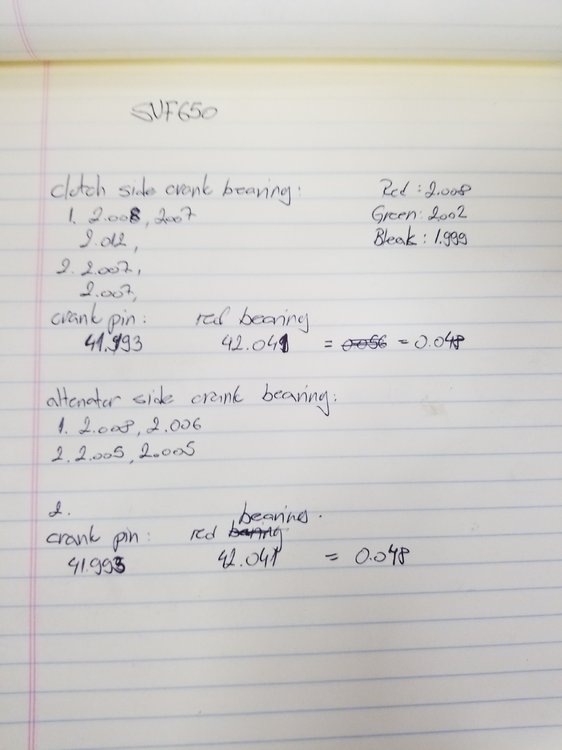 SVF650
clotch side crank bearing:
Red: 2.008
1. 2.008, 2.007
Green: 2.002
2.012,
Bleak: 1.999
2. 2.007,
2.007,
crank pin: red bearing
41.993 42.041 = 0.056 = 0.048
altenator side crank bearing:
1. 2.008, 2.006
2. 2.005, 2.005
2. bearines.
crank pin: red bearing
41.993 42.041 = 0.048